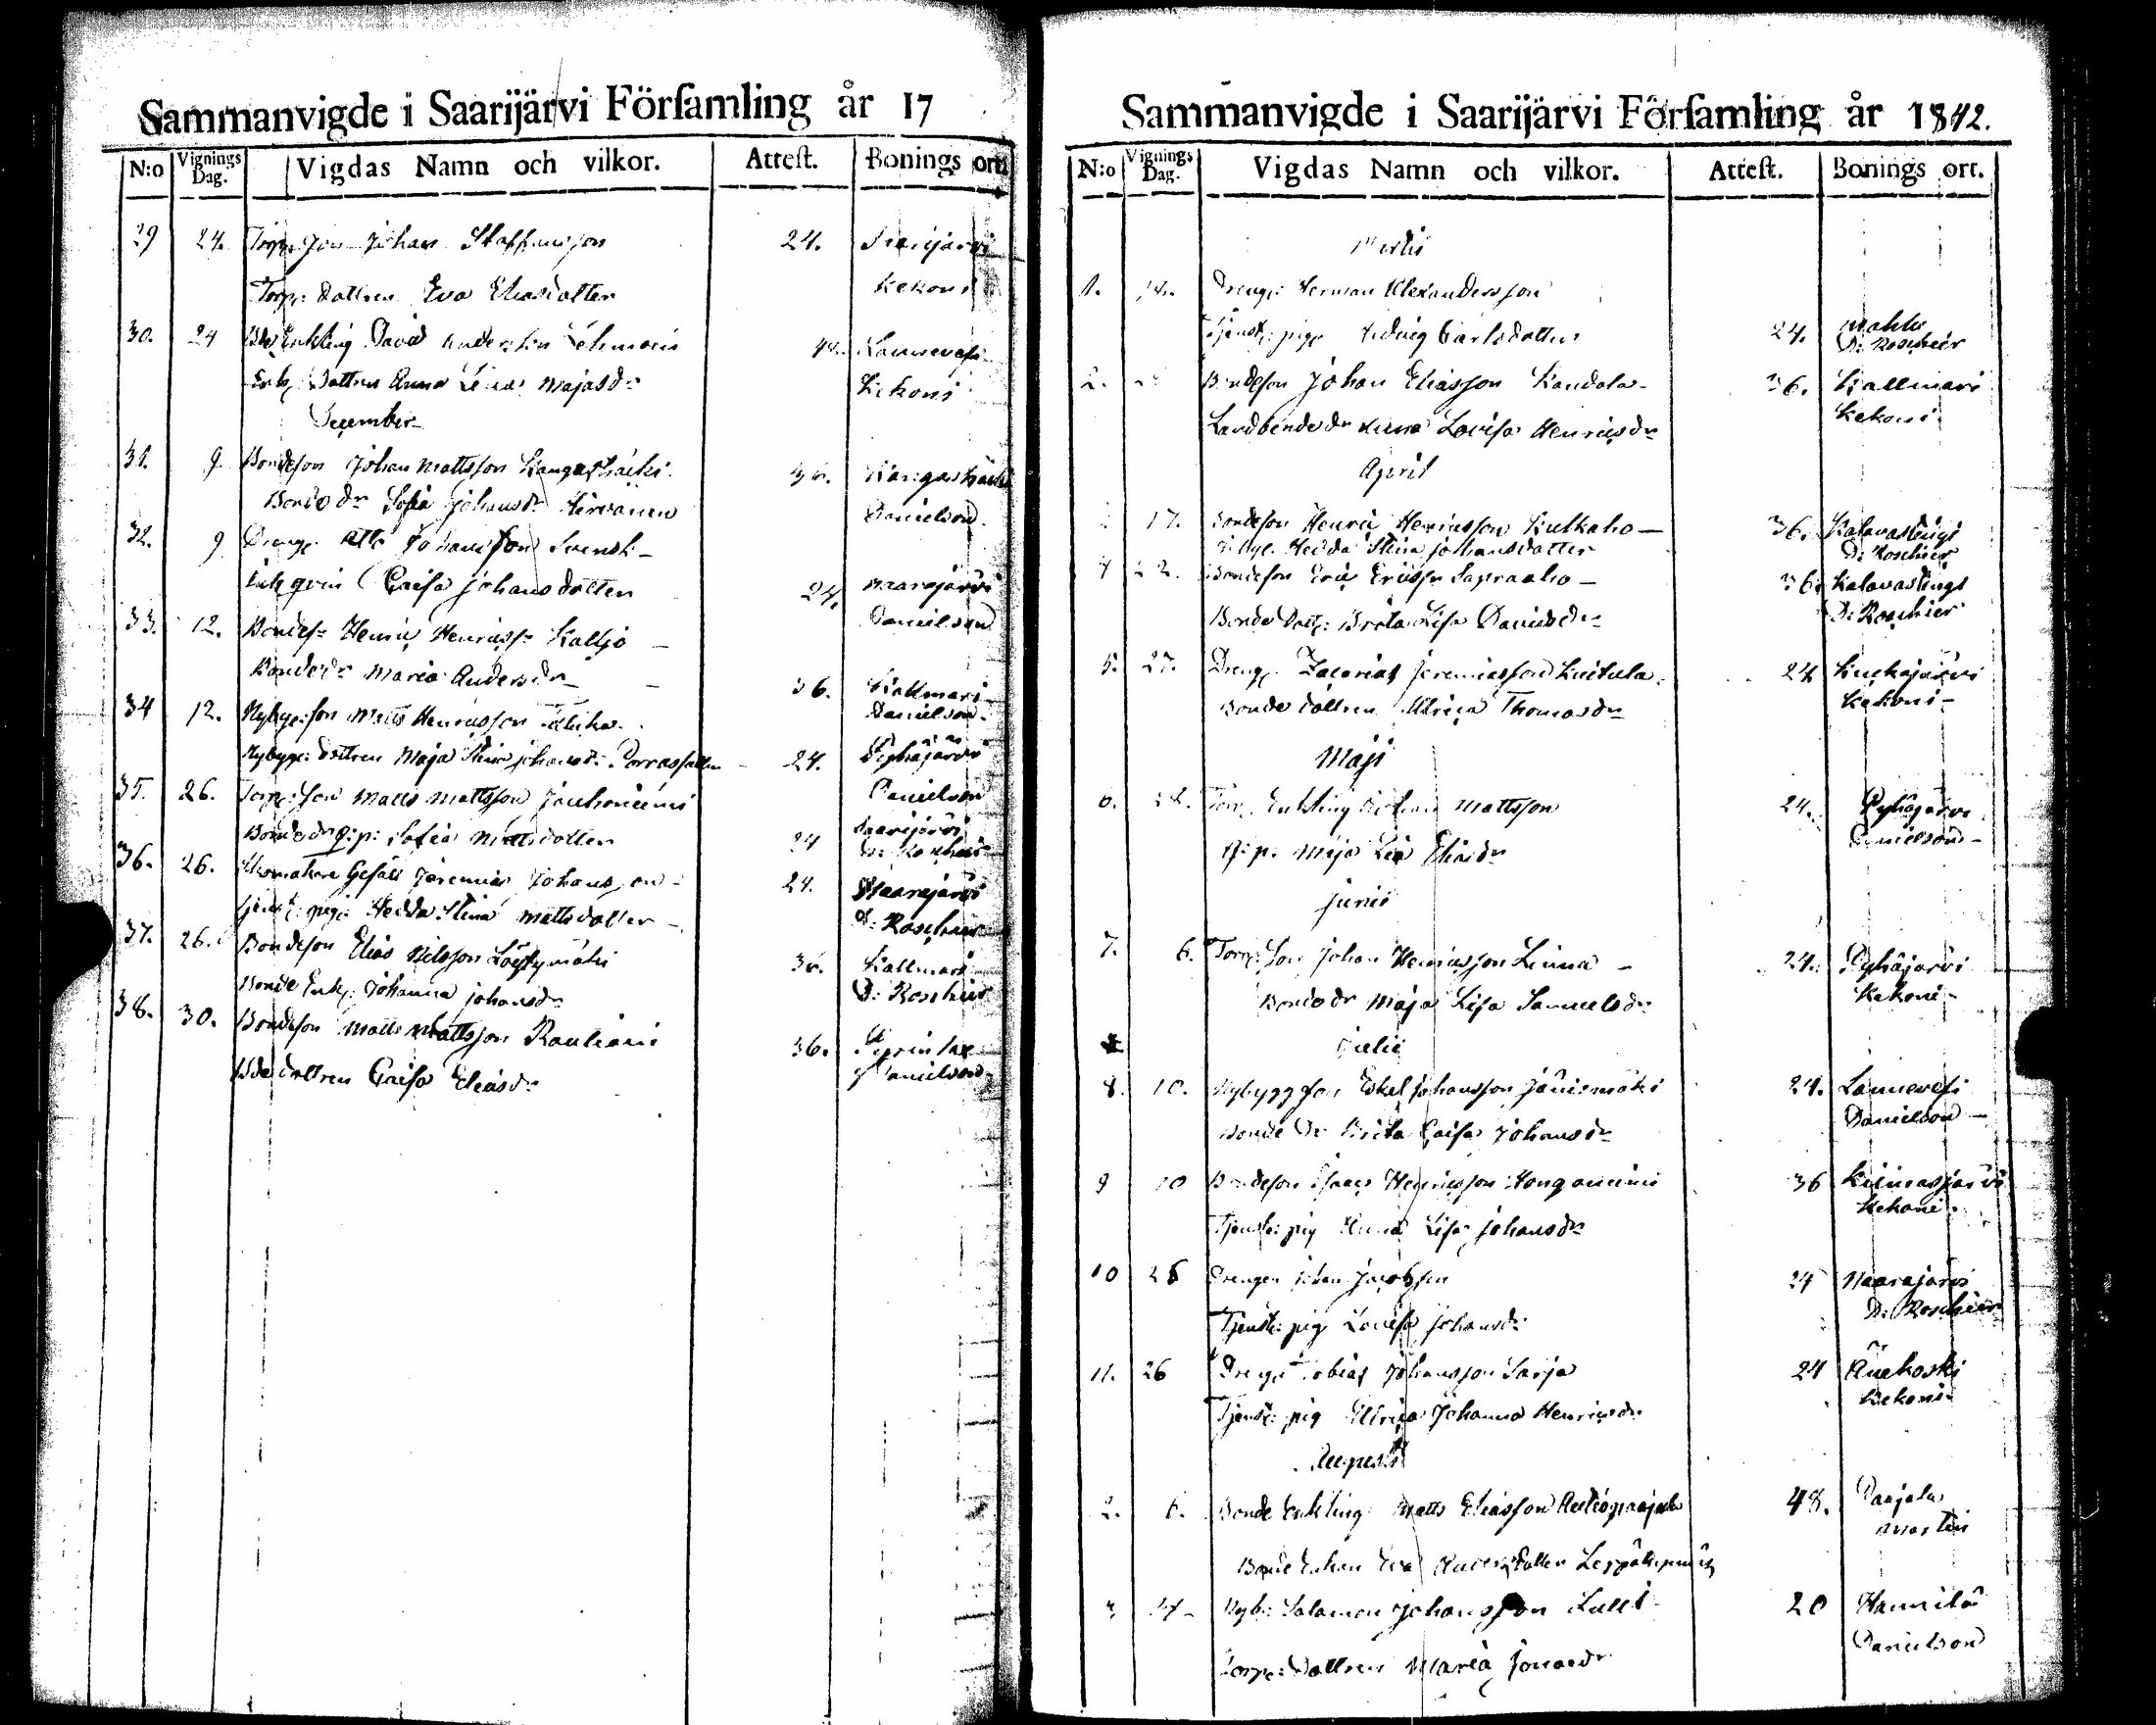 Sammanvigde i Saarijärvi Församling år 17
N:o Vignings Dag. Vigdas Namn och vilkor. Attest. Bonings ort.
29 24. Torp: Son Johan Staffansson 24. Saarijärvi
Torp: dottren Eva Eliasdotter Kekoni
30. 24 Enkling David Andersson Lehmois Lannevesi
Enk: Dottren Anna Lena Majasdr Kekoni
December
31. 9. Bondeson Johan Mattsson Kangashäki 36. Kangashäki
Bondedr Sofia Johansdr Hirvonen Danielson
32. 9 Dreng: Johansson Svensk
Enkqvin Caisa Johansdotter 24. Naarajärvi
Danielson
33. 12. Bondes: Henric Henricss: Kaljo
Bondedr Maria Andersdr 36. Kallmari
Danielson
34 12. Nybyg: son Matts Henricsson
Nybyg: dottren Maja Stina Johansdr 24. Pyhäjärvi
35. 26. Torp: son Matts Mattsson Jauhoniemi Danielson
Bondedr q:p: Sofia Mattsdotter 24 Saarijärvi
D: Roschier
36. 26. Skomakare Gesäll Jeremias Johansson 24. Naarajärvi
tjenst: pig: Hedda Stina Mattsdotter D: Roschier
37. 26. Bondeson Elias Nilsson Löytymäki 36. Kallmari
Bonde Enk: Johanna Johansdr D: Roschier
38. 30. Bondeson Matts Mattsson Rauhiais 36.
Bdedottren Caisa Eliasdr Danielson
Sammanvigde i Saarijärvi Församling år 1842.
N:o Vignings Dag. Vigdas Namn och vilkor. Attest. Bonings ort.
Martis
1. Dreng: Herman Alexandersson
Tjenst: pig: Hedvig Carlsdotter 24. Mahlu
D: Roschier
2. Bondeson Johan Eliasson Kandola 36. Kallmari
Landbondedr Anna Lovisa Henricsdr Kekoni
April
17. Bondeson Henric Henricsson Kulkaho 36. Kalavastingi
Hedda Stina Johansdotter D: Roschier
4 22. Bondeson Eric Ericss: Sapraaho 36 Kalavastingi
Bonde Dott: Brita Lisa Davidsdr D: Roschier
5. 27. Dreng: Zacarias Jeremiasson Luitula 24 Kuckajärvi
Bonde dottren Ulrica Thomasdr Kekoni
Maji
6. 28. Torp: Enkling Johan Mattsson 24. Pyhäjärvi
q: p: Maja Lia Eliasdr Danielson
Junii
7. 6. Torp: Son Johan Henricsson Linna 24. Pyhäjärvi
Bondedr Maja Lisa Samuelsdr Kekoni
Julii
8. 10. Nybyggson Eskel Johansson Jänismäki 24. Lannevesi
Bonde Dr Brita Caisa Johansdr Danielson
9 10 Bondeson Isaac Henricsson Honganiemi 36 Kiimasjärvi
Tjenst: pig Anna Lisa Johansdr Kekoni
10 26 Drengen Johan Jacobsson 24 Naarajärvi
Tjenst: pig Lovisa Johansdr D: Roschier
11. 26 Dreng: Tobias Johansson Sarja 24 Änekoski
Tjenst: pig Ulrica Johanna Henricsdr Kekoni
Augusti
2. 6. Bonde Enkling Matts Eliasson Autiopaajala 48. Paajala
Bonde Enkan Eva Andersdotter Martin
14 Nyb: Salamon Johansson Lulli 20 Hannila
Torp: Dottren Maria Jonaedr Danielson